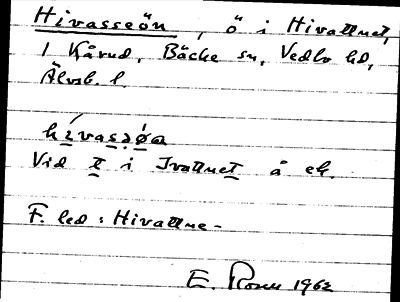 Hivasseön, ö i Hivattnet,
1 Kårud, Bäcke sn, Vedbo hd,
Älvsb. l.
hi̱vasəøa
Vid t̲ i Ivattnet̲ å ek.
F. led: Hivattne-
E. Rosu 1962